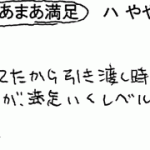 あまあ満足 ハ やや
てたから引き渡し時
が、満足いくレベル